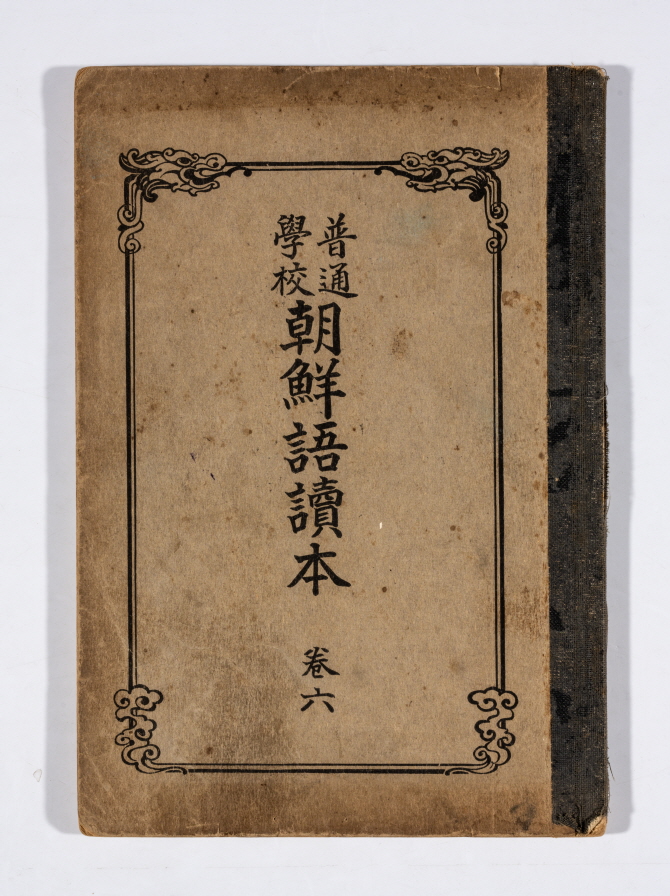 普通
學校
朝鮮語讀本
卷六